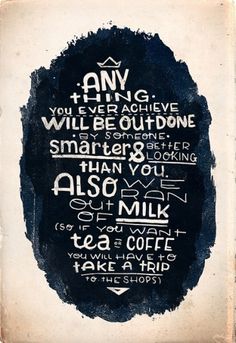 ANY
THING
YOU EVER ACHIEVE
WILL BE OUTDONE
BY SOMEONE
smarter & BETTER LOOKING
THAN YOU.
ALSO WE RAN
OUT OF MILK
(SO IF YOU WANT
tea OR COFFE
YOU WILL HAVE TO
TAKE A TRIP
TO THE SHOPS)